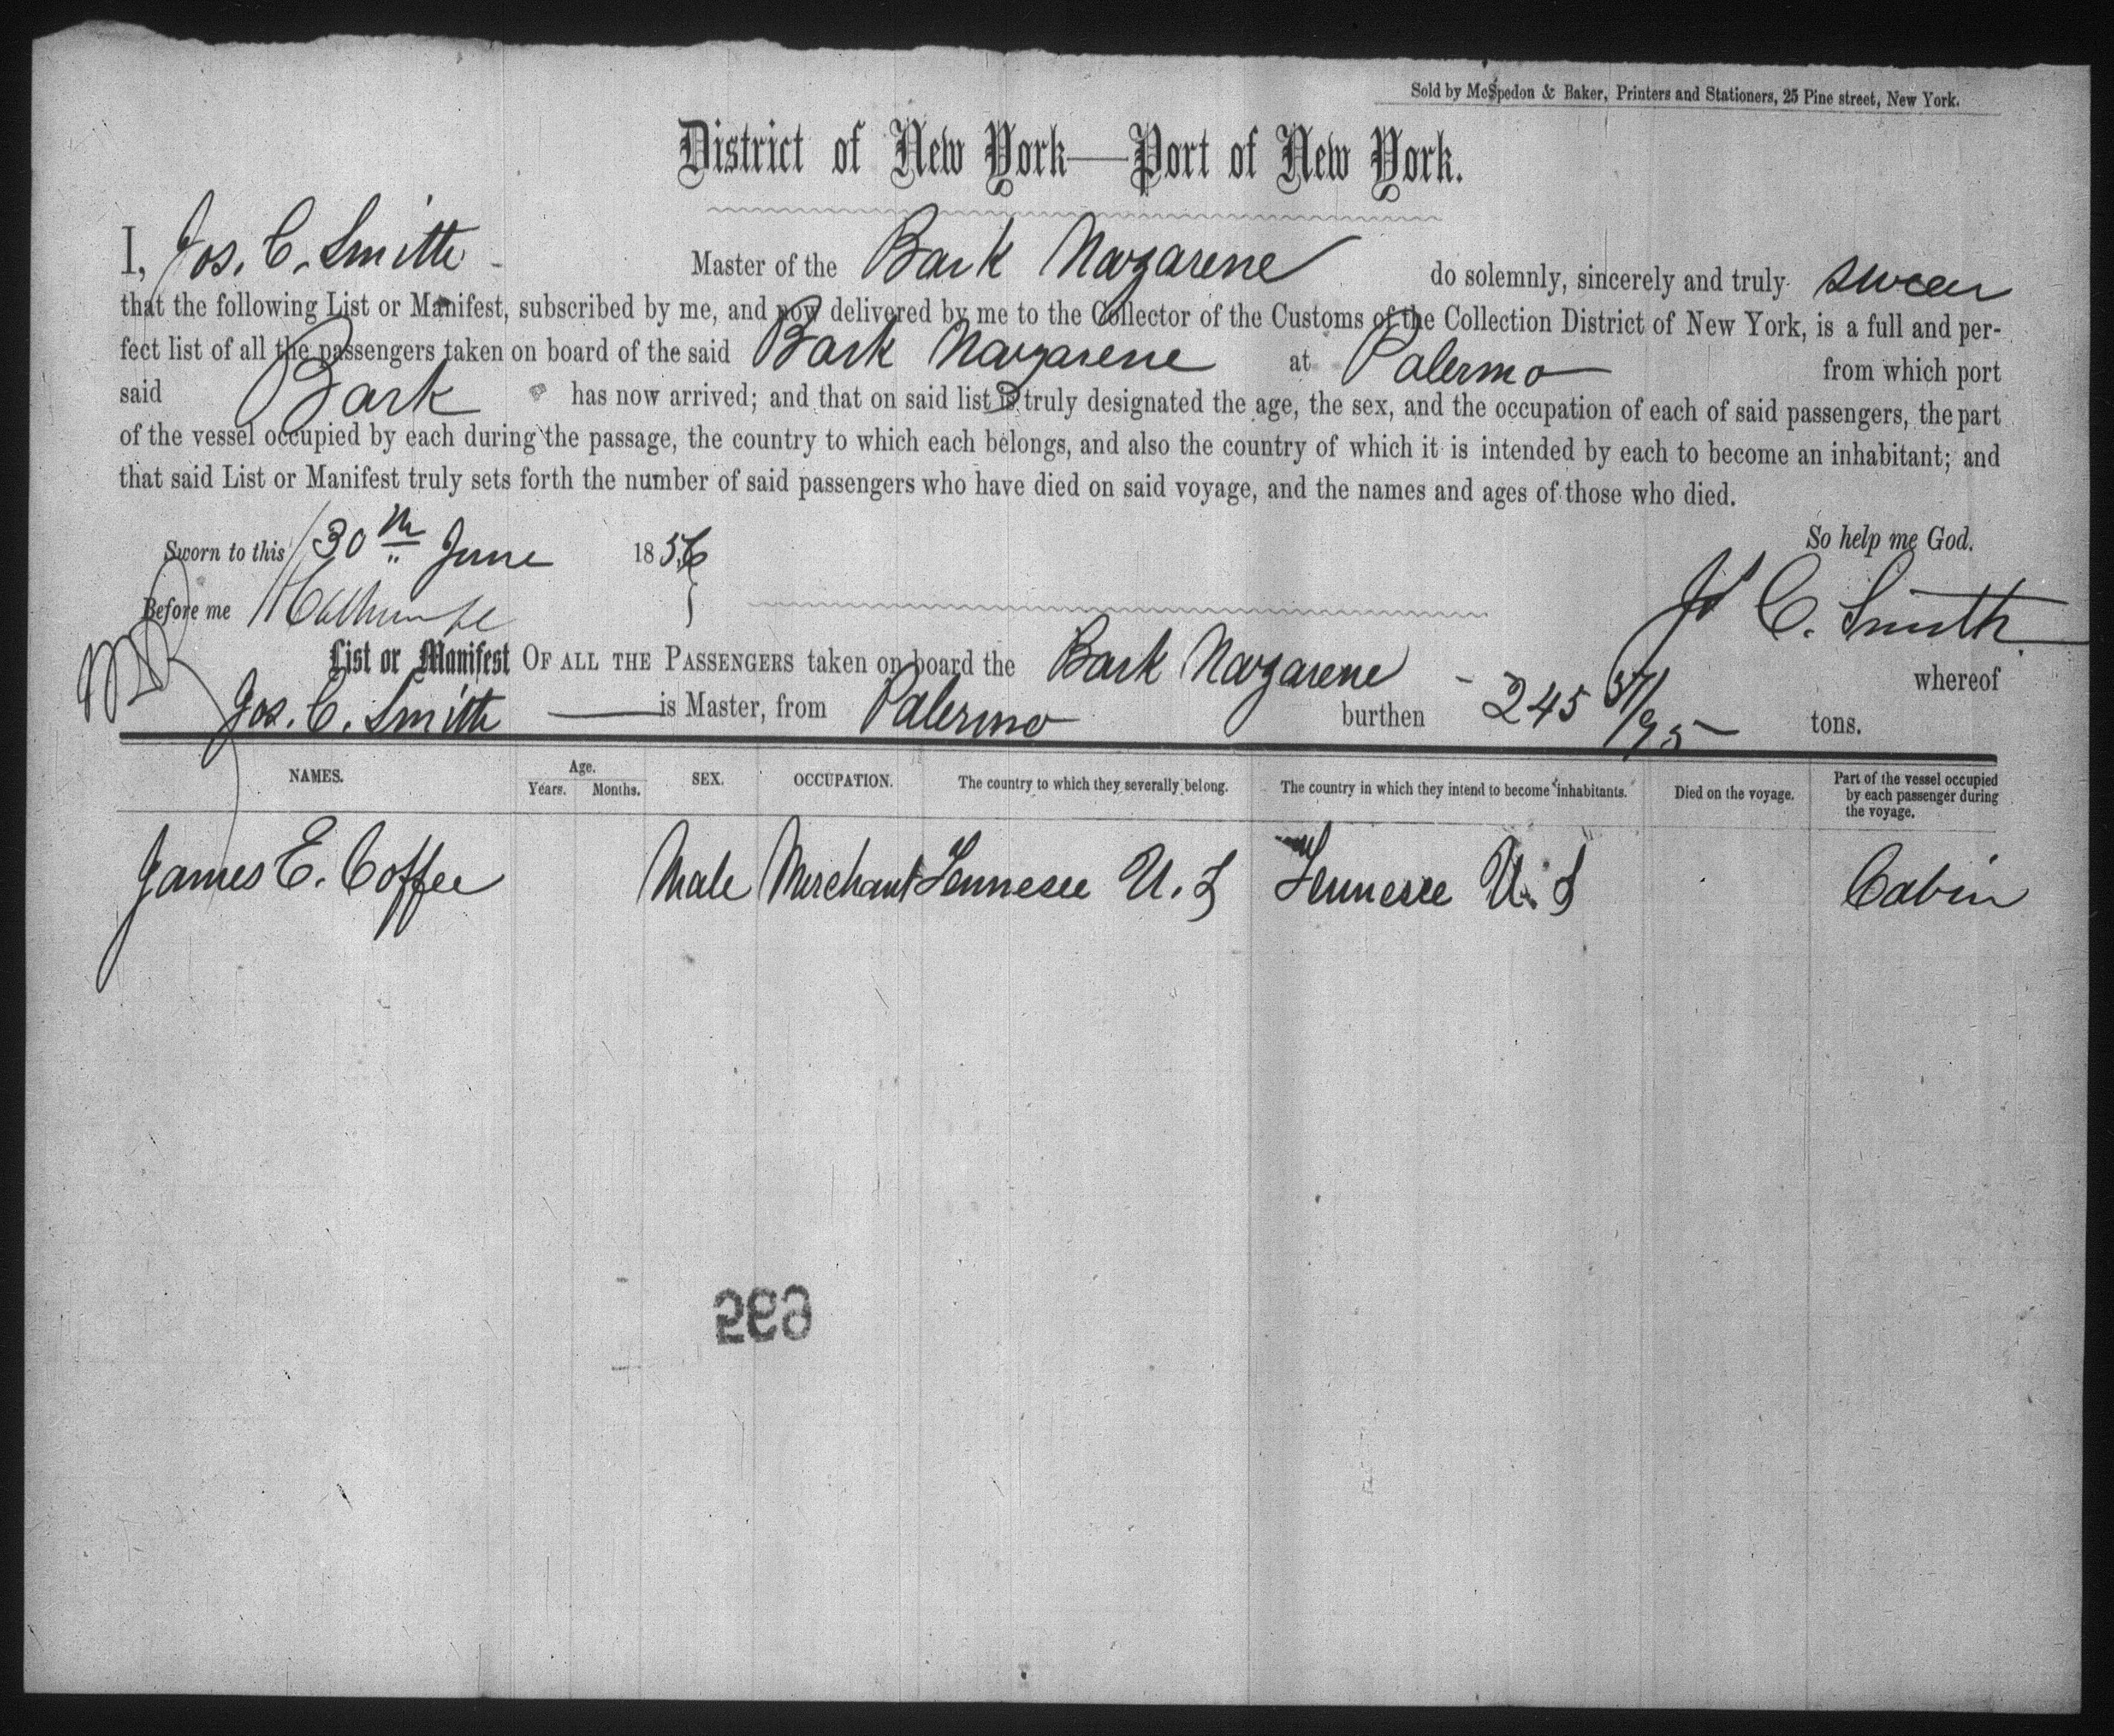 Sold by McSpedon & Baker, Printers and Stationers, 25 Pine street, New York.
District of New York—Port of New York.
I, Jos. C. Smith Master of the Bark Nazarene do solemnly, sincerely and truly swear
that the following List or Manifest, subscribed by me, and now delivered by me to the Collector of the Customs of the Collection District of New York, is a full and per-
fect list of all the passengers taken on board of the said Bark Nazarene at Palermo from which port
said Bark has now arrived; and that on said list is truly designated the age, the sex, and the occupation of each of said passengers, the part
of the vessel occupied by each during the passage, the country to which each belongs, and also the country of which it is intended by each to become an inhabitant; and
that said List or Manifest truly sets forth the number of said passengers who have died on said voyage, and the names and ages of those who died.
So help me God.
Sworn to this 30th June 1856
Jos C. Smith
Before me
List or Manifest OF ALL THE PASSENGERS taken on board the Bark Nazarene whereof
Jos. C. Smith is Master, from Palermo burthen 245 37/95 tons.
NAMES. Age. Years. Months. SEX. OCCUPATION. The country to which they severally belong. The country in which they intend to become inhabitants. Died on the voyage. Part of the vessel occupied by each passenger during the voyage.
James E. Coffee Male Merchant Tennesee U. S Tennesee U. S Cabin
695